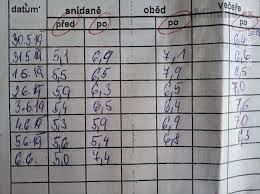 datum snídaně oběd večeře
před po po po
30.5.19 6,4
31.5.19 5,1 6,9 7,1
1.6.19 5,5 6,5 7,9
2.6.19 5,9 6,3 6,5
3.6.19 5,4 6,5 6,4 7,6
4.6.19 5,3 5,9 6,9 7,0
5.6.19 5,6 5,4 6,8 6,3
6.6. 5,0 7,4